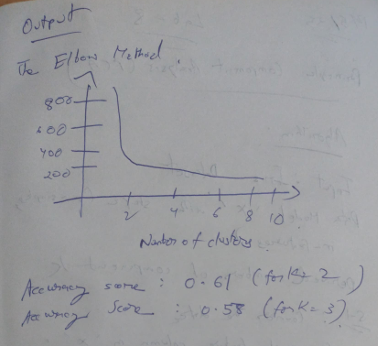 Output
The Elbow Method.
800
600
400
200
2 4 6 8 10
Number of clusters
Accuracy score : 0.61 (for K=2)
Accuracy Score : 0.58 (for K=3)